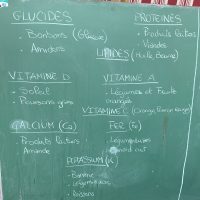 GLUCIDES
- Bonbons (Glucose)
- Amidons
PROTEINES
- Produits laitiers
- Viandes
LIPIDES (Huile, Beurre)
VITAMINE D
- Soleil
- Poissons gras
VITAMINE A
- Légumes et Fruits
oranges
VITAMINE C (Orange, Citron, Kiwi)
CALCIUM (Ca)
- Produits laitiers
- Amande
FER (Fe)
- Légumineuses
POTASSIUM (K)
- Banane
- Légumineuses
- Poissons